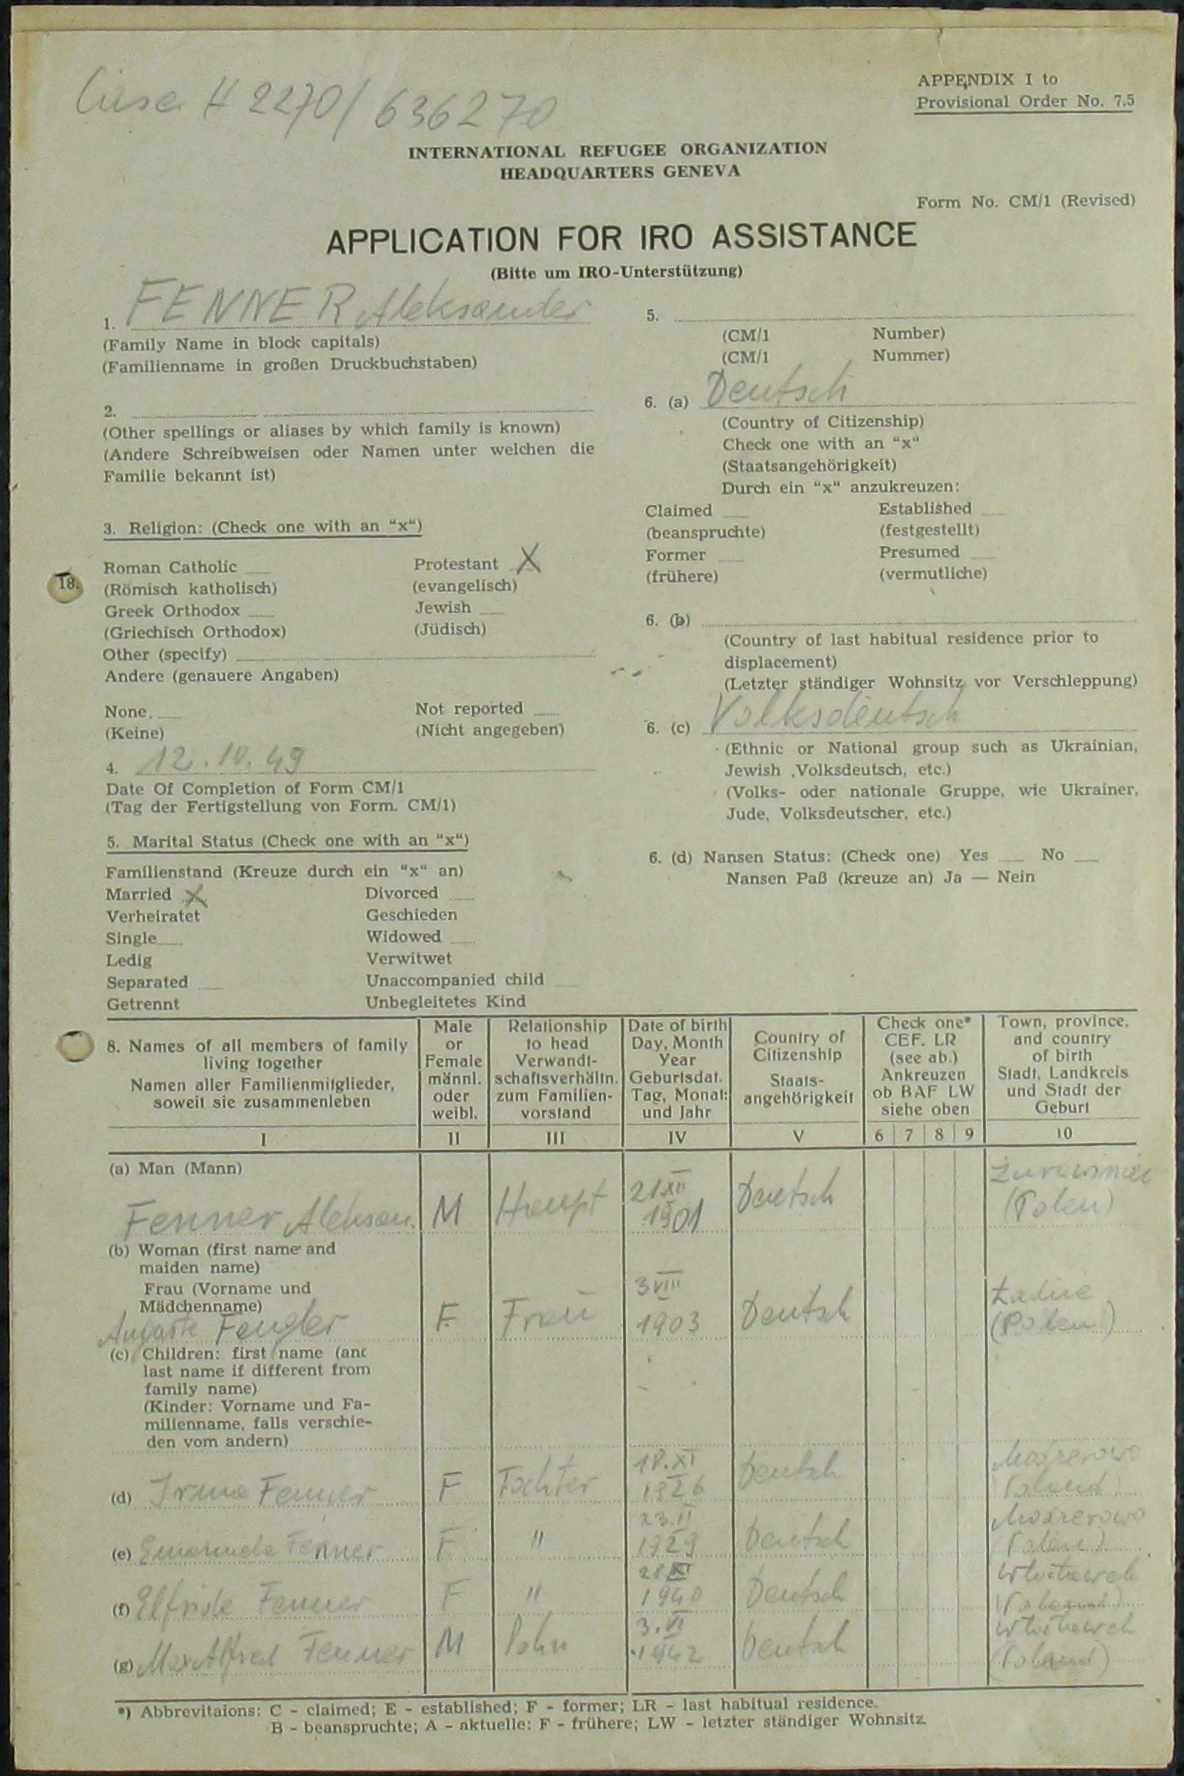 Case # 2270/636270
APPENDIX I to
Provisional Order No. 7.5
INTERNATIONAL REFUGEE ORGANIZATION
HEADQUARTERS GENEVA
Form No. CM/1 (Revised)
APPLICATION FOR IRO ASSISTANCE
(Bitte um IRO-Unterstützung)
1. FENNER Aleksander
(Family Name in block capitals)
(Familienname in großen Druckbuchstaben)
2.
(Other spellings or aliases by which family is known)
(Andere Schreibweisen oder Namen unter welchen die
Familie bekannt ist)
3. Religion: (Check one with an “x“)
Roman Catholic
Protestant X
(Römisch katholisch)
(evangelisch)
Greek Orthodox
Jewish
(Griechisch Orthodox)
(Jüdisch)
Other (specify)
Andere (genauere Angaben)
None.
Not reported
(Keine)
(Nicht angegeben)
4. 12.10.49
Date Of Completion of Form CM/1
(Tag der Fertigstellung von Form. CM/1)
5. Marital Status (Check one with an “x“)
Familienstand (Kreuze durch ein “x“ an)
Married X
Divorced
Verheiratet
Geschieden
Single
Widowed
Ledig
Verwitwet
Separated
Unaccompanied child
Getrennt
Unbegleitetes Kind
18.
5.
(CM/1 Number)
(CM/1 Nummer)
6. (a) Deutsch
(Country of Citizenship)
Check one with an “x“
(Staatsangehörigkeit)
Durch ein “x“ anzukreuzen:
Claimed
Established
(beanspruchte)
(festgestellt)
Former
Presumed
(frühere)
(vermutliche)
6. (b)
(Country of last habitual residence prior to
displacement)
(Letzter ständiger Wohnsitz vor Verschleppung)
6. (c) Volksdeutsch
(Ethnic or National group such as Ukrainian,
Jewish ,Volksdeutsch, etc.)
(Volks- oder nationale Gruppe, wie Ukrainer,
Jude, Volksdeutscher, etc.)
6. (d) Nansen Status: (Check one) Yes No
Nansen Paß (kreuze an) Ja — Nein
8. Names of all members of family
living together
Namen aller Familienmitglieder,
soweit sie zusammenleben
Male
or
Female
männl.
oder
weibl.
Relationship
to head
Verwandt-
schaftsverhältn.
zum Familien-
vorstand
Date of birth
Day, Month
Year
Geburtsdat.
Tag, Monat:
und Jahr
Country of
Citizenship
Staats-
angehörigkeit
Check one*
CEF. LR
(see ab.)
Ankreuzen
ob BAF LW
siehe oben
Town, province,
and country
of birth
Stadt, Landkreis
und Stadt der
Geburt
I II III IV V 6 7 8 9 10
(a) Man (Mann)
Fenner Aleksan. M Haupt 21 XII 1901 Deutsch (Polen)
(b) Woman (first name and
maiden name)
Frau (Vorname und
Mädchenname)
Auguste Fengler F. Frau 3 VIII 1903 Deutsch (Polen)
(c) Children: first name (and
last name if different from
family name)
(Kinder: Vorname und Fa-
milienname, falls verschie-
den vom andern)
(d) Irma Fenner F Tochter 18.XI 1926 Deutsch Poland
(e) Fenner F. " 23.II 1929 Deutsch (Polen)
(f) Elfride Fenner F " 28 XI 1940 Deutsch
(g) Max Alfred Fenner M Sohn 3.VI 1942 Deutsch (Poland)
*) Abbrevitaions: C - claimed; E - established; F - former; LR - last habitual residence.
B - beanspruchte; A - aktuelle; F - frühere; LW - letzter ständiger Wohnsitz